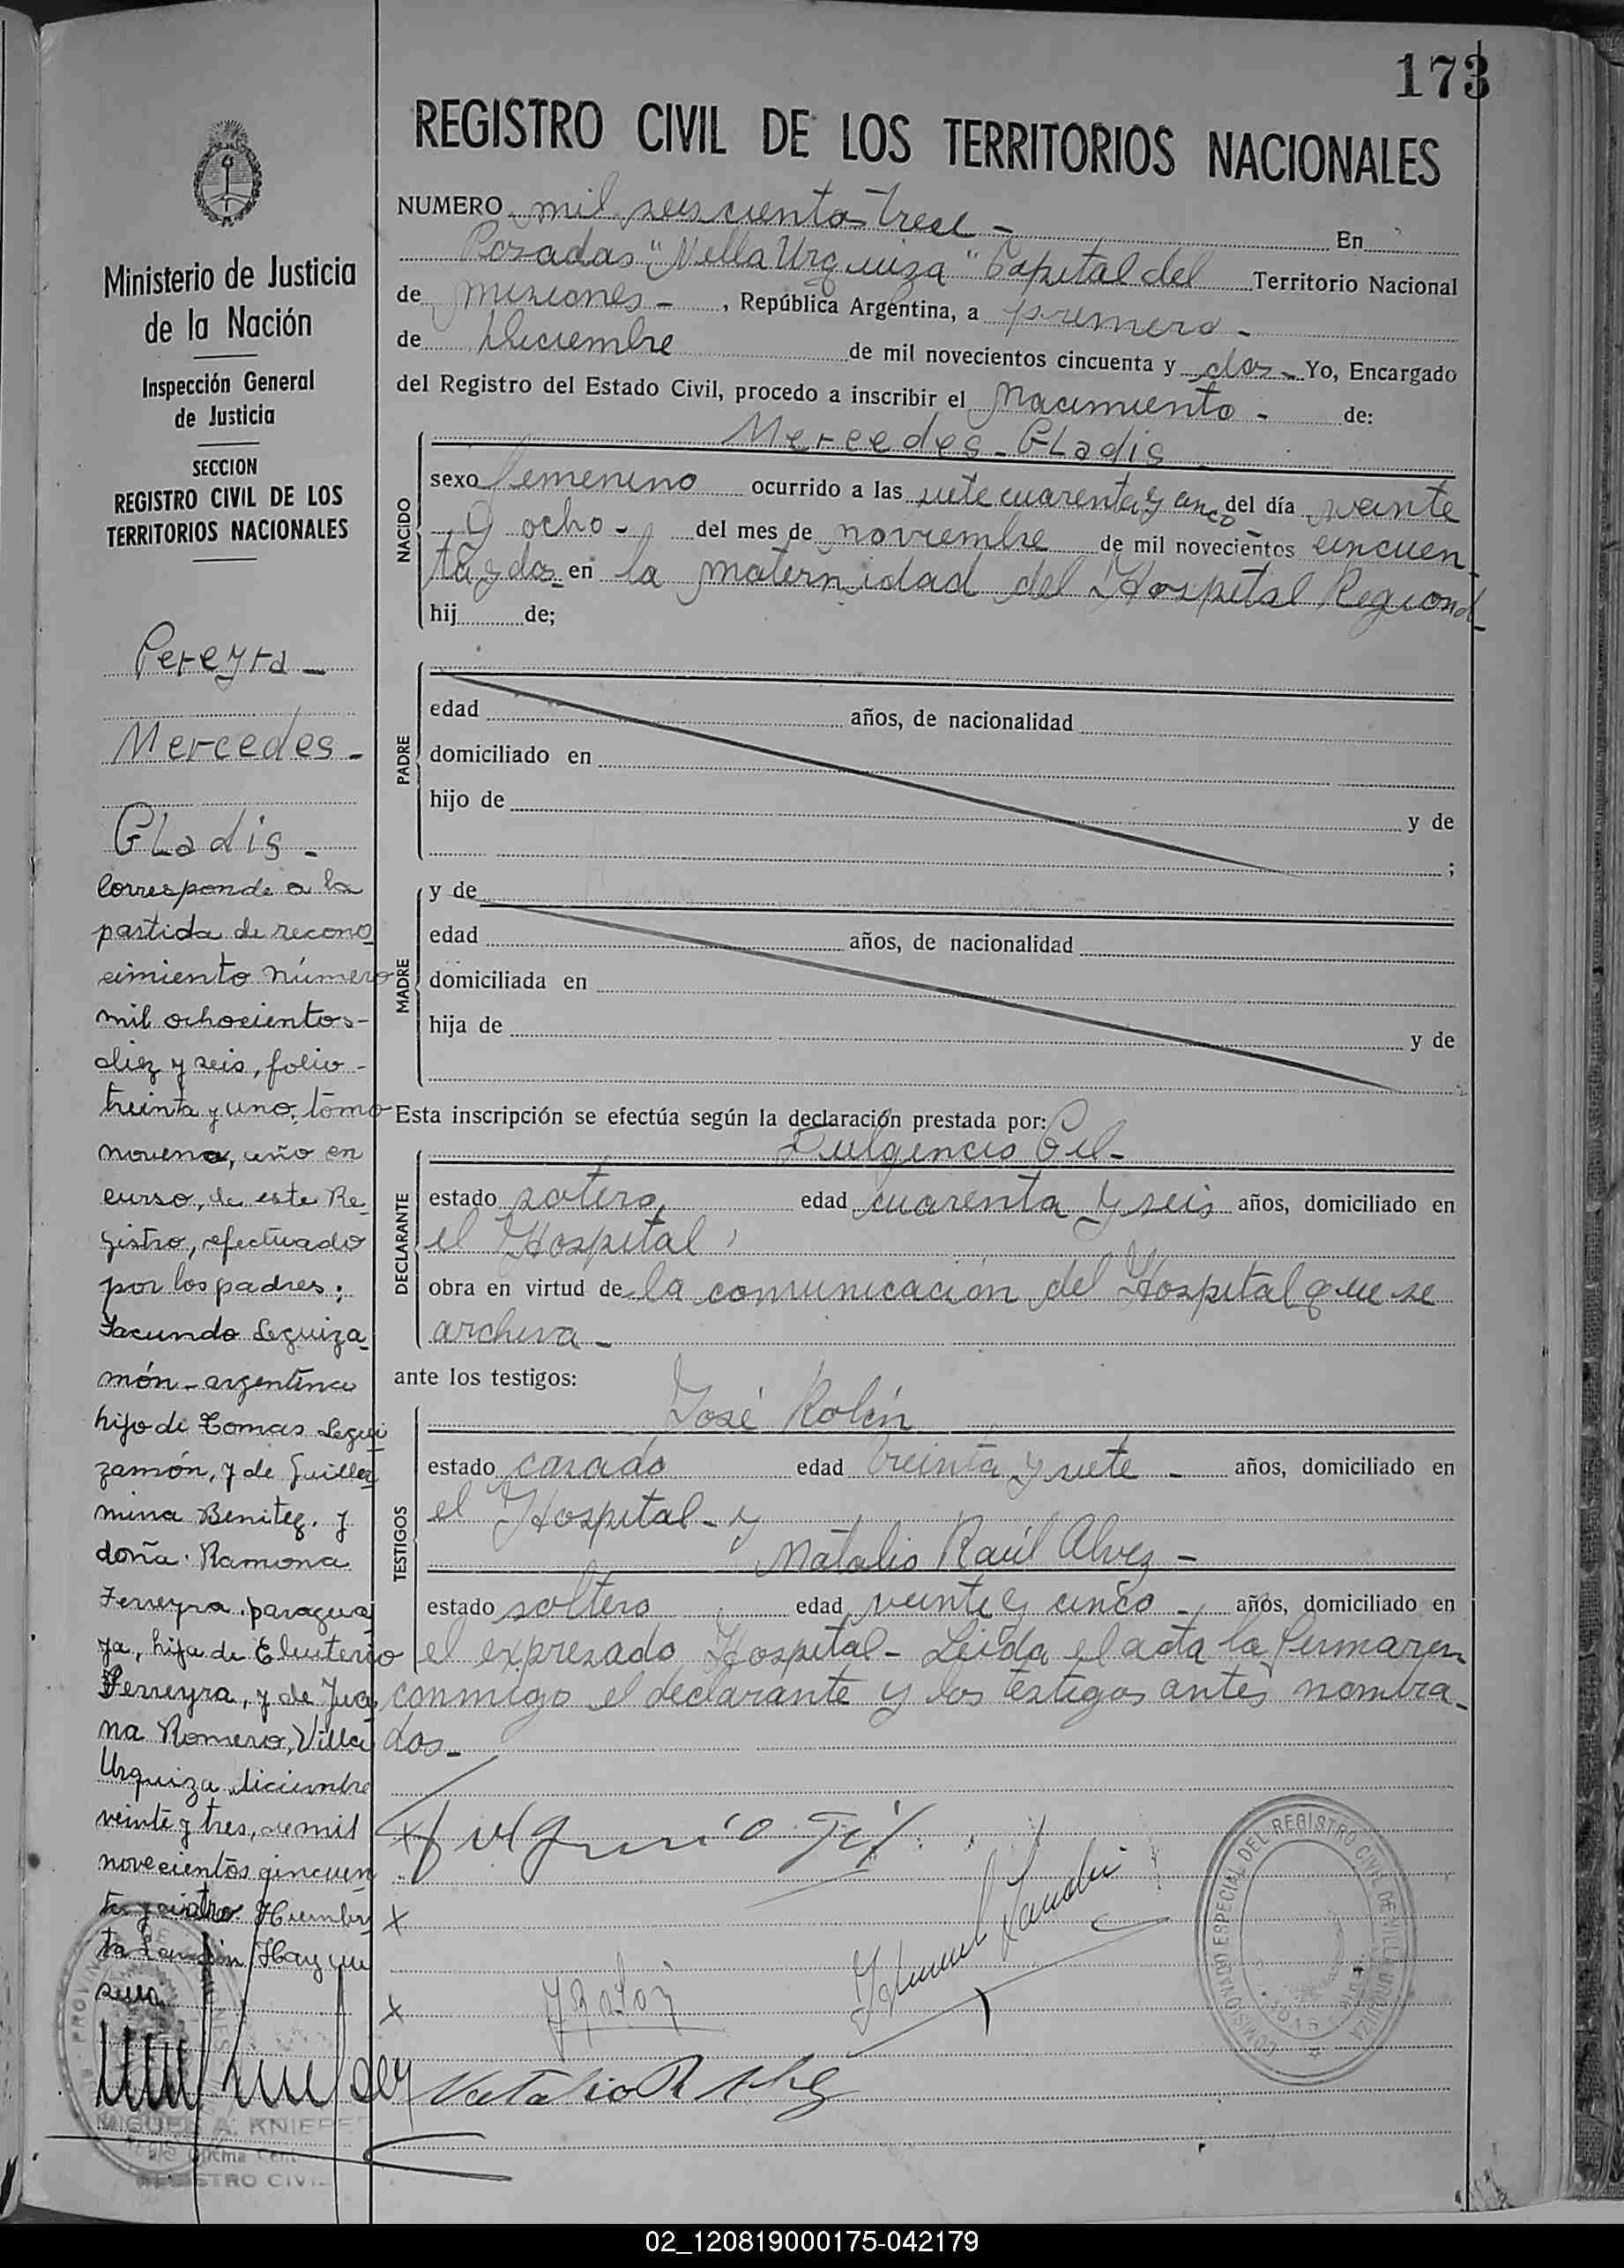 173
REGISTRO CIVIL DE LOS TERRITORIOS NACIONALES
NUMERO mil seiscientos trece - En
Posadas "Villa Urquiza" Capital del Territorio Nacional
de Misiones - , República Argentina, a primero -
de Diciembre de mil novecientos cincuenta y dos - Yo, Encargado
del Registro del Estado Civil, procedo a inscribir el Nacimiento - de:
Mercedes - GLadis
NACIDO
sexo femenino ocurrido a las siete cuarenta y cinco del día veinte
y ocho - del mes de noviembre de mil novecientos cincuen
ta y dos - en la maternidad del Hospital Regional -
hij de;
PADRE
edad años, de nacionalidad
domiciliado en
hijo de y de
;
MADRE
y de
edad años, de nacionalidad
domiciliada en
hija de y de
Esta inscripción se efectúa según la declaración prestada por:
Fulgencio Gil -
DECLARANTE
estado soltero, edad cuarenta y seis años, domiciliado en
el Hospital,
obra en virtud de la comunicación del Hospital que se
archiva -
ante los testigos:
José Rolón
TESTIGOS
estado casado edad treinta y siete - años, domiciliado en
el Hospital - y
Natalio Raúl Alvez -
estado soltero edad veinte y cinco - años, domiciliado en
el expresado Hospital - Leída el acta la firmaron
conmigo el declarante y los testigos antes nombra-
dos -
Fulgencio Gil
Natalio R Alvez
COMISIONADO ESPECIAL DEL REGISTRO CIVIL DE VILLA URQUIZA
Ministerio de Justicia
de la Nación
Inspección General
de Justicia
SECCION
REGISTRO CIVIL DE LOS
TERRITORIOS NACIONALES
Pereyra -
Mercedes -
GLadis -
Corresponde a la
partida de recono
cimiento número
mil ochocientos -
diez y seis, folio -
treinta y uno, tomo
noveno, año en
curso, de este Re
gistro, efectuado
por los padres;
Facundo Leguiza
món - argentino
hijo de Tomas Legui
zamón, y de Guiller
mina Benitez. y
doña Ramona
Ferreyra, paragua
ya, hija de Eleuterio
Ferreyra, y de Jua
na Romero, Villa
Urquiza diciembre
veinte y tres, de mil
novecientos cincuen
ta y cuatro.
MIGUEL A. KNIEPE
REGISTRO CIVIL
02_120819000175-042179